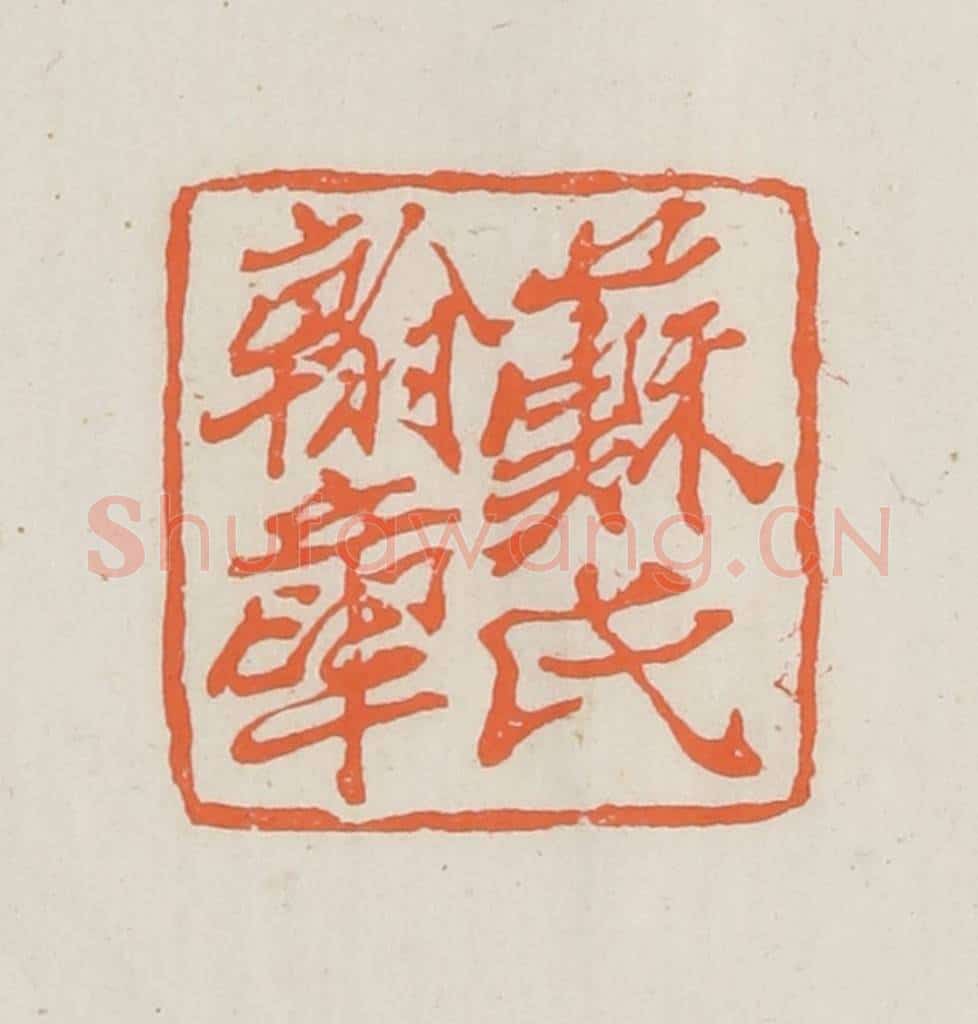 蘇氏
翰
Shufawang.CN